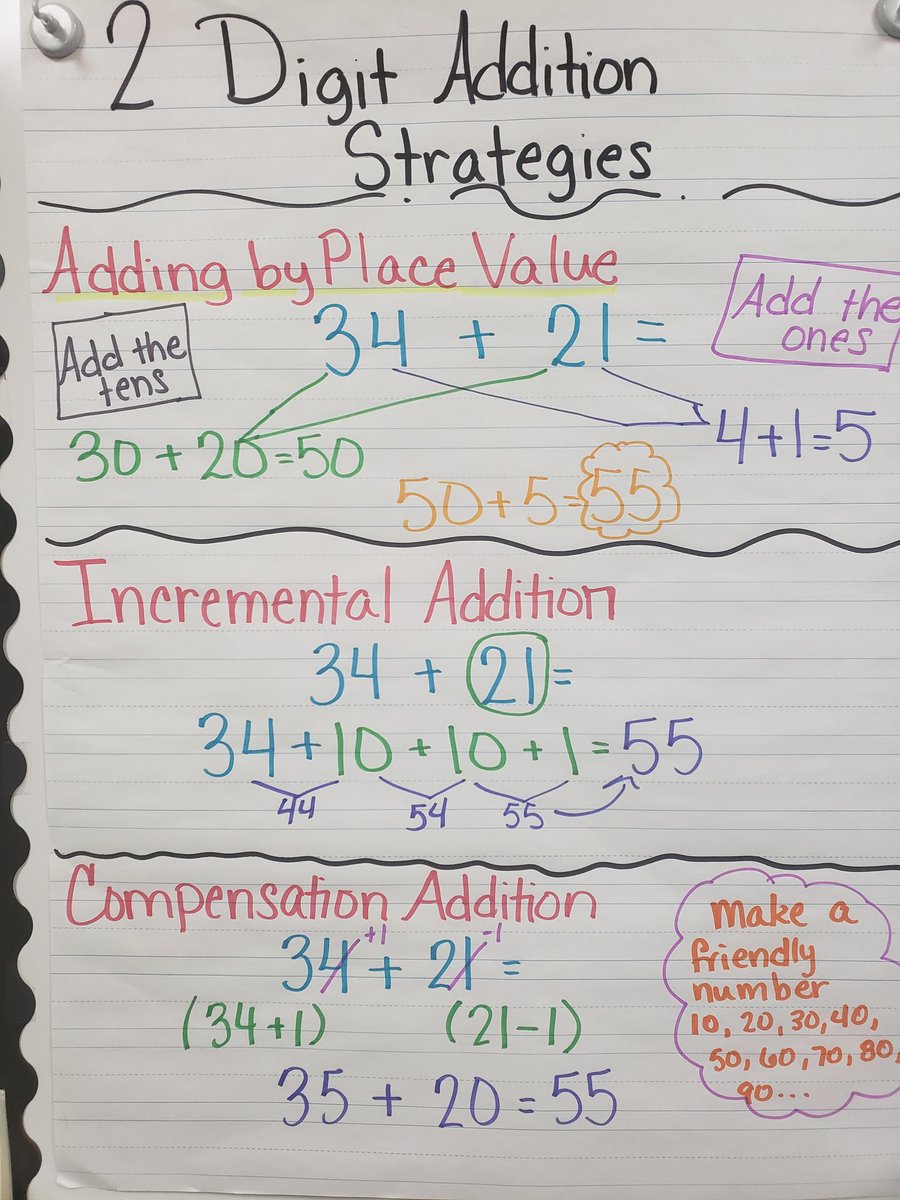 2 Digit Addition
Strategies
Adding by Place Value
34 + 21 =
Add the
tens
Add the
ones
30 + 20 = 50
4 + 1 = 5
50 + 5 = 55
Incremental Addition
34 + 21 =
34 + 10 + 10 + 1 = 55
44 54 55
Compensation Addition
+1 -1
34 + 21 =
(34+1) (21-1)
35 + 20 = 55
Make a
friendly
number
10, 20, 30, 40,
50, 60, 70, 80,
90...